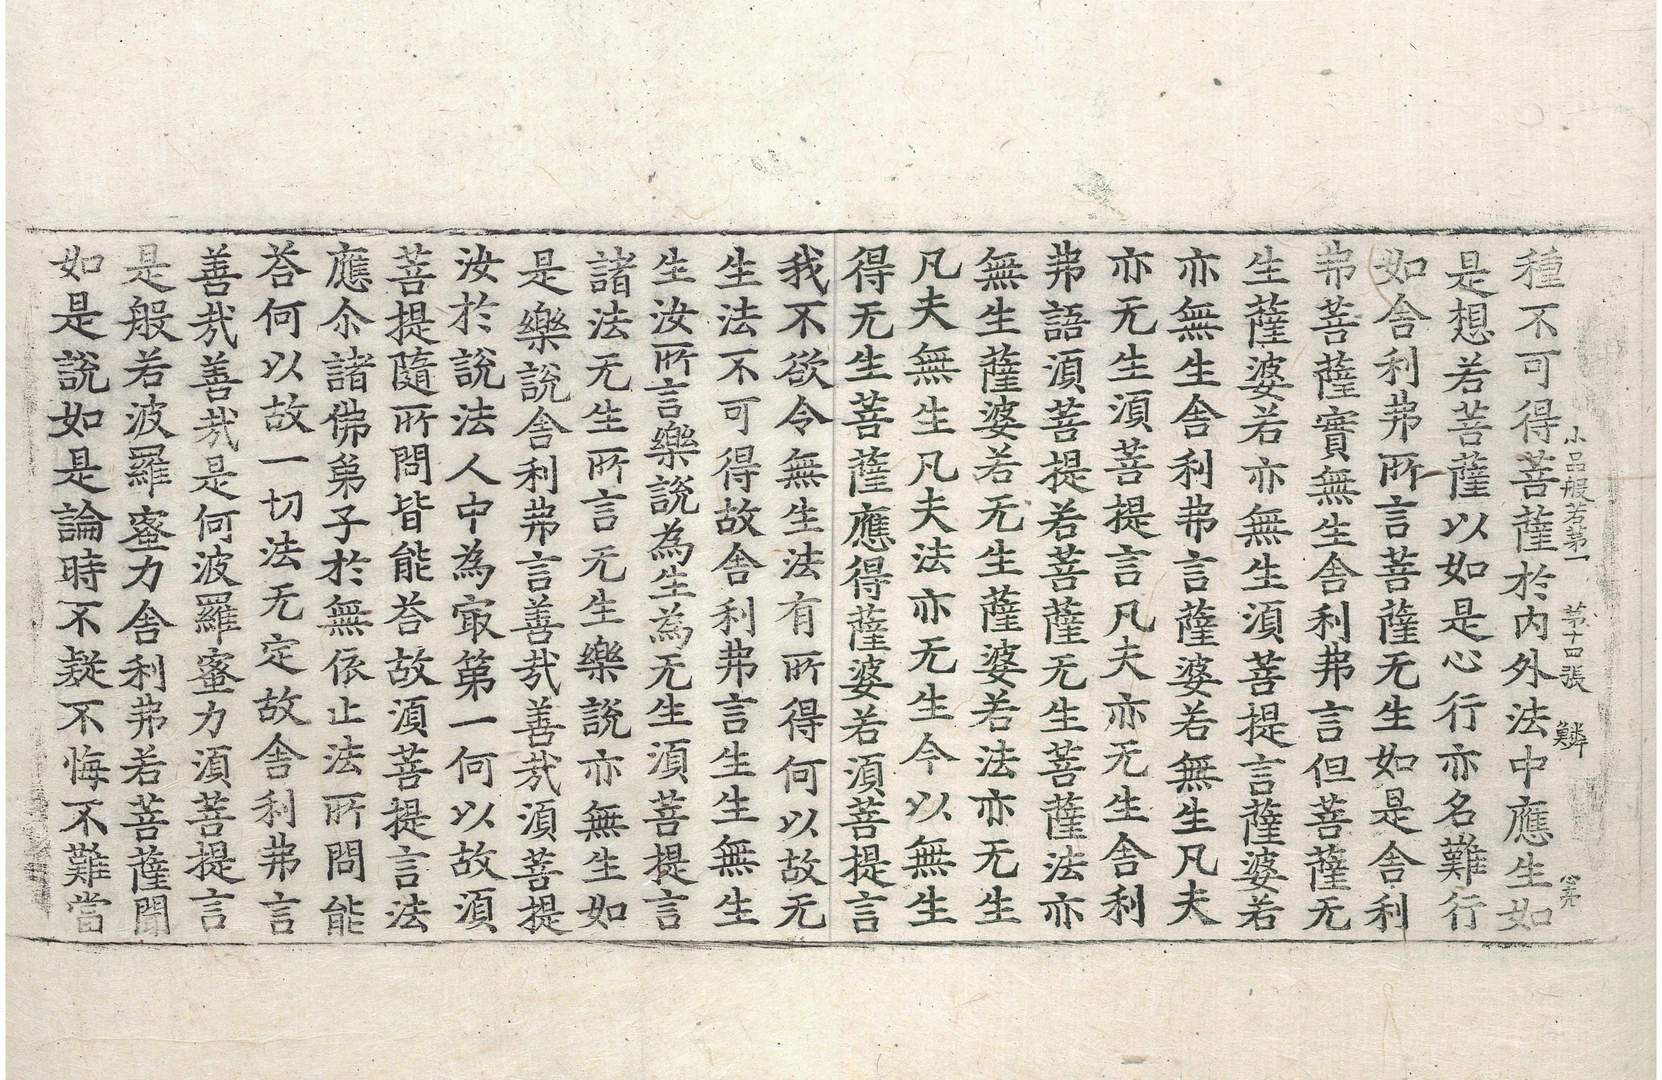 小品般若第一　第十四張　鱗
種不可得菩薩於内外法中應生如
是想若菩薩以如是心行亦名難行
如舍利弗所言菩薩无生如是舍利
弗菩薩實無生舍利弗言但菩薩无
生薩婆若亦無生須菩提言薩婆若
亦無生舍利弗言薩婆若無生凡夫
亦无生須菩提言凡夫亦无生舍利
弗語須菩提若菩薩无生菩薩法亦
無生薩婆若无生薩婆若法亦无生
凡夫無生凡夫法亦无生今以無生
得无生菩薩應得薩婆若須菩提言
我不欲令無生法有所得何以故无
生法不可得故舍利弗言生生無生
生汝所言樂說為生為无生須菩提言
諸法无生所言无生樂說亦無生如
是樂說舍利弗言善哉善哉須菩提
汝於說法人中為冣第一何以故須
菩提隨所問皆能荅故須菩提言法
應尒諸佛弟子於無依止法所問能
荅何以故一切法无定故舍利弗言
善哉善哉是何波羅蜜力須菩提言
是般若波羅蜜力舍利弗若菩薩聞
如是說如是論時不疑不悔不難當